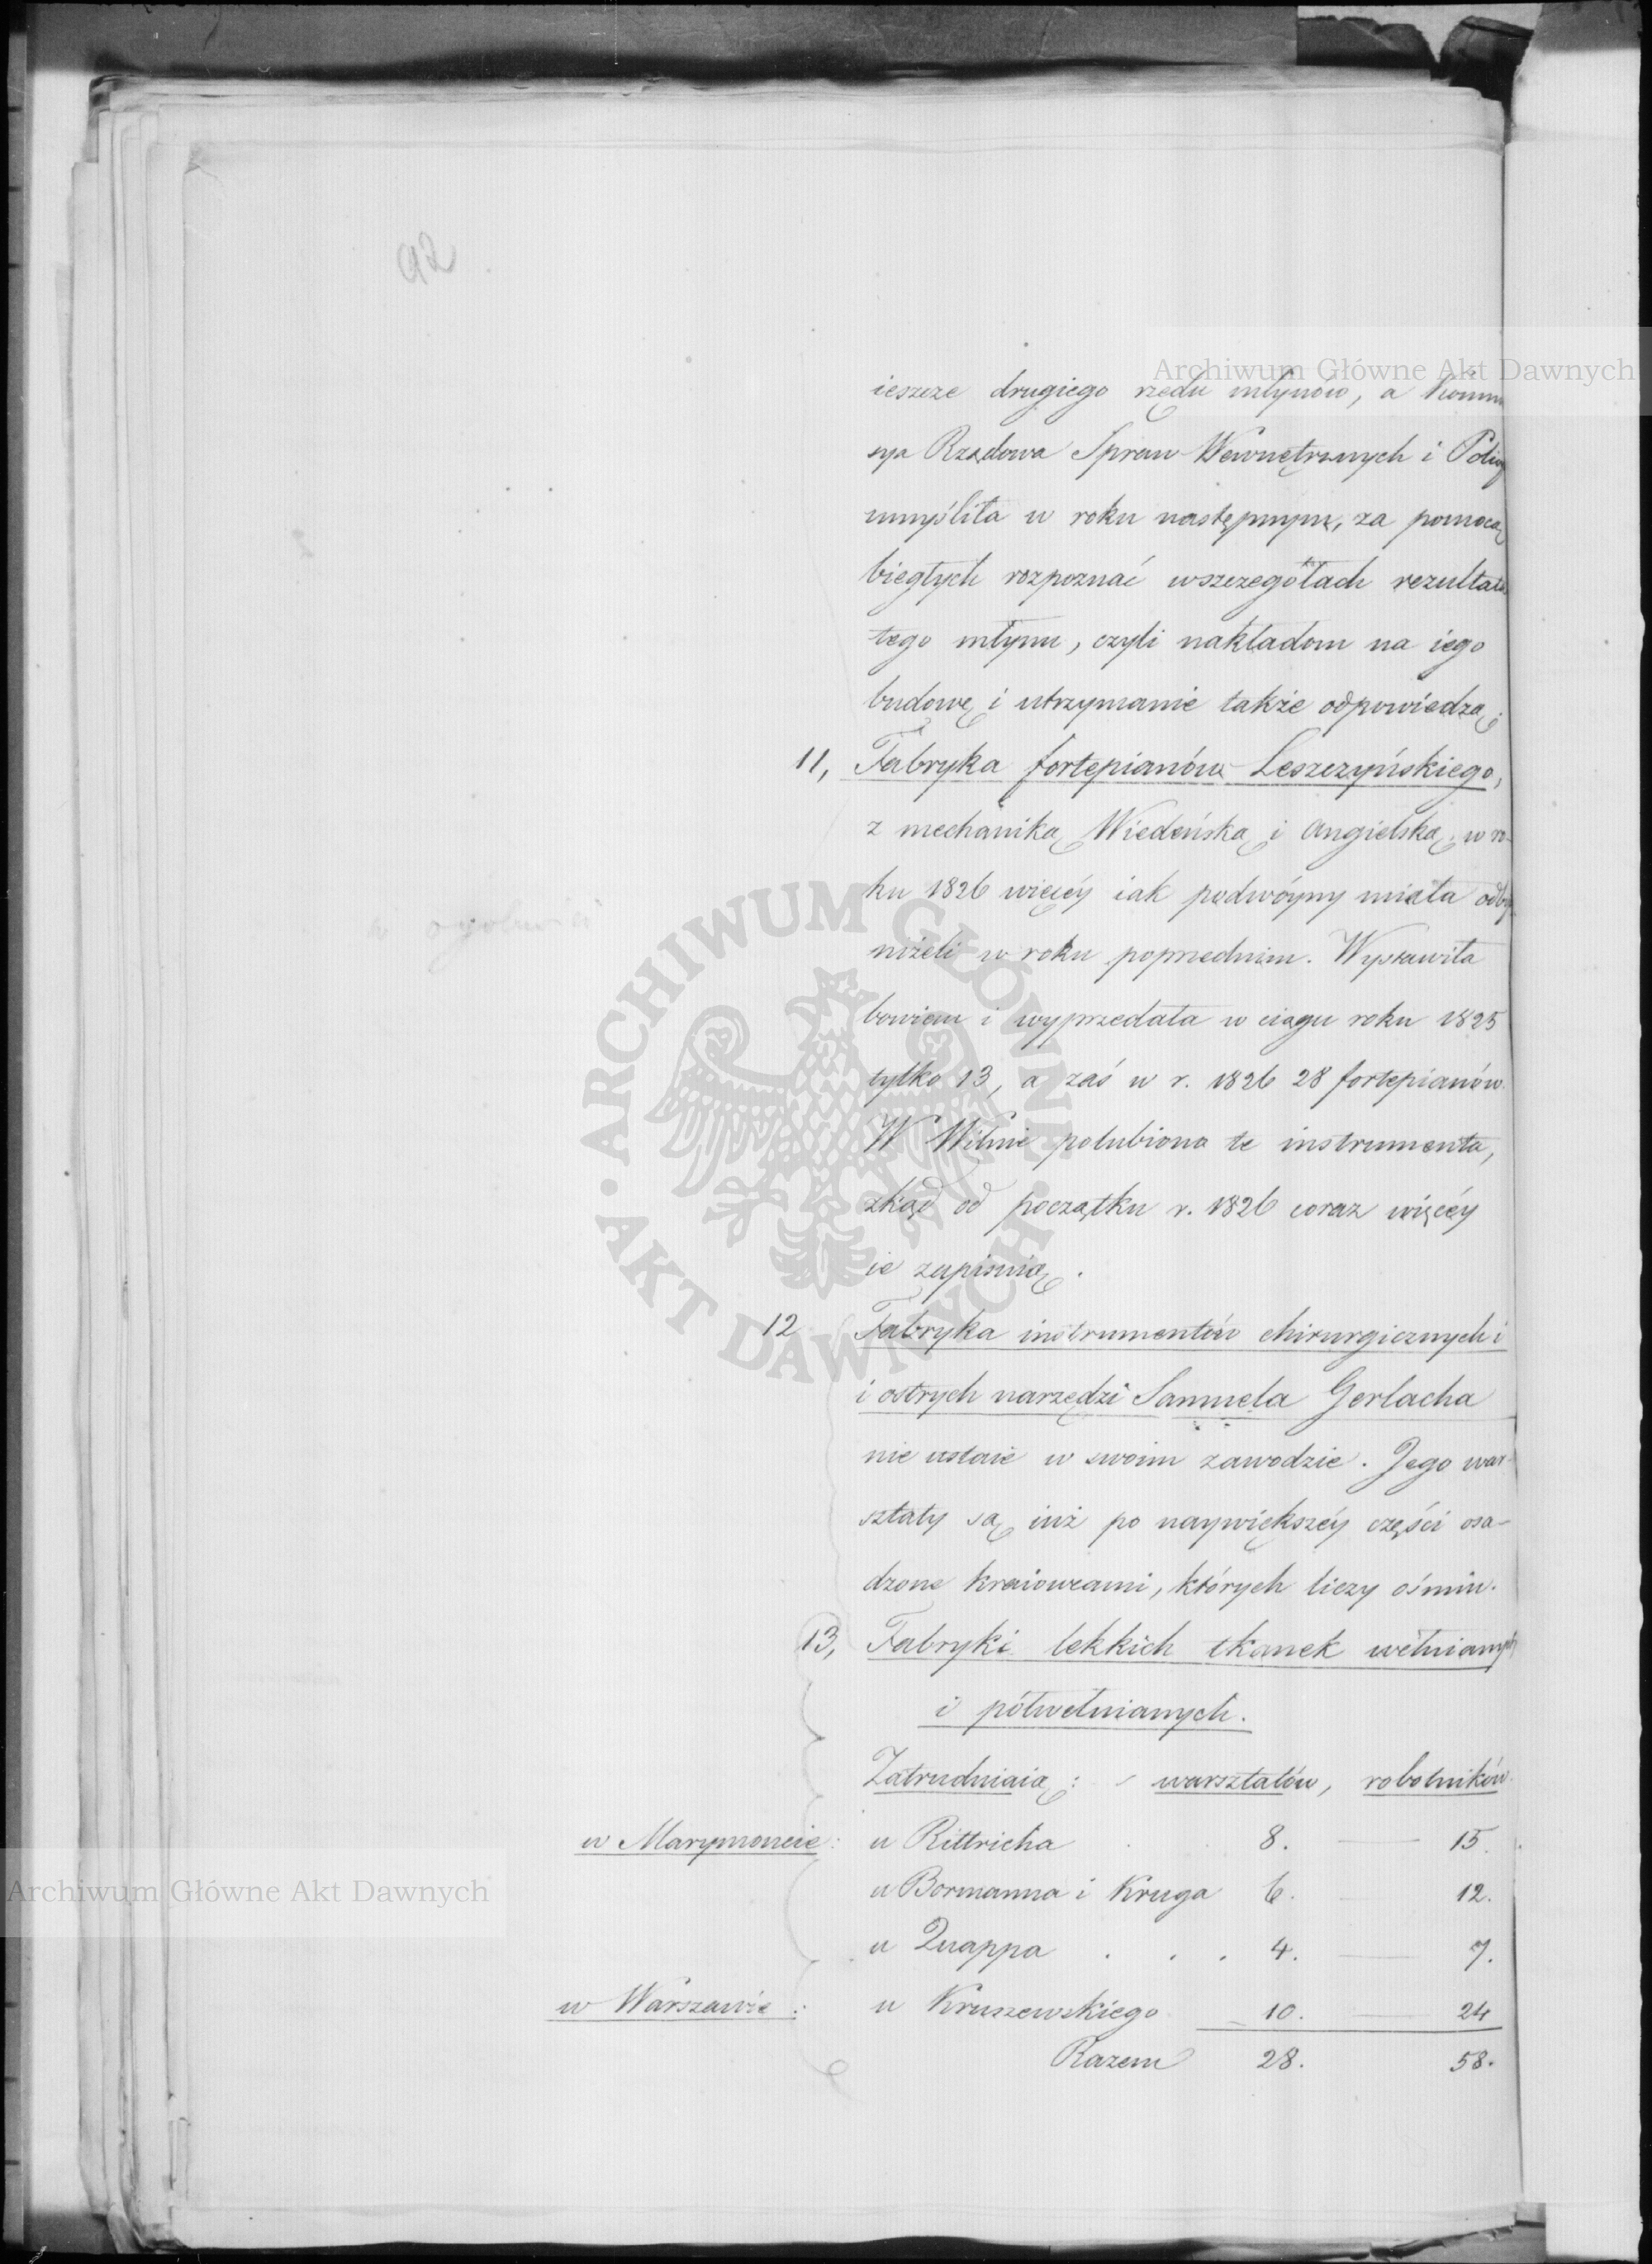 92
Archiwum Główne Akt Dawnych
ieszcze drugiego rzędu młynów, a Kommi
sya Rządowa Spraw Wewnętrznych i Policyi
umyśliła w roku następnym, za pomocą
biegłych rozpoznać wszczegółach rezultata
tego młynu, czyli nakładom na iego
budowę i utrzymanie także odpowiedzą.
11, Fabryka fortepianów Leszczyńskiego,
z mechaniką Wiedeńską i Angielską, w ro-
ku 1826 więcéy iak podwóyny miała odbyt
niżeli w roku poprzednim. Wystawiła
bowiem i wyprzedała w ciągu roku 1825
tylko 13, a zaś w r. 1826 28 fortepianów.
W Wilnie polubiono te instrumenta,
zkąd od początku r. 1826 coraz więcéy
ie zapisuią.
12 Fabryka instrumentów chirurgicznych i
i ostrych narzędzi Samuela Gerlacha
nie ustaie w swoim zawodzie. Jego war-
sztaty są iuż po naywiększéy części osa-
dzone kraiowcami, których liczy ośmiu.
13, Fabryki lekkich tkanek wełnianych
i półwełnianych.
Zatrudniaią: warsztatów, robotników.
w Marymoncie: u Rittricha 8. — 15.
u Bormanna i Kruga 6. — 12.
Archiwum Główne Akt Dawnych
u Quappa . . . 4. — 7.
w Warszawie: u Kruszewskiego 10. — 24
Razem 28. 58.
ARCHIWUM GŁÓWNE · AKT DAWNYCH ·